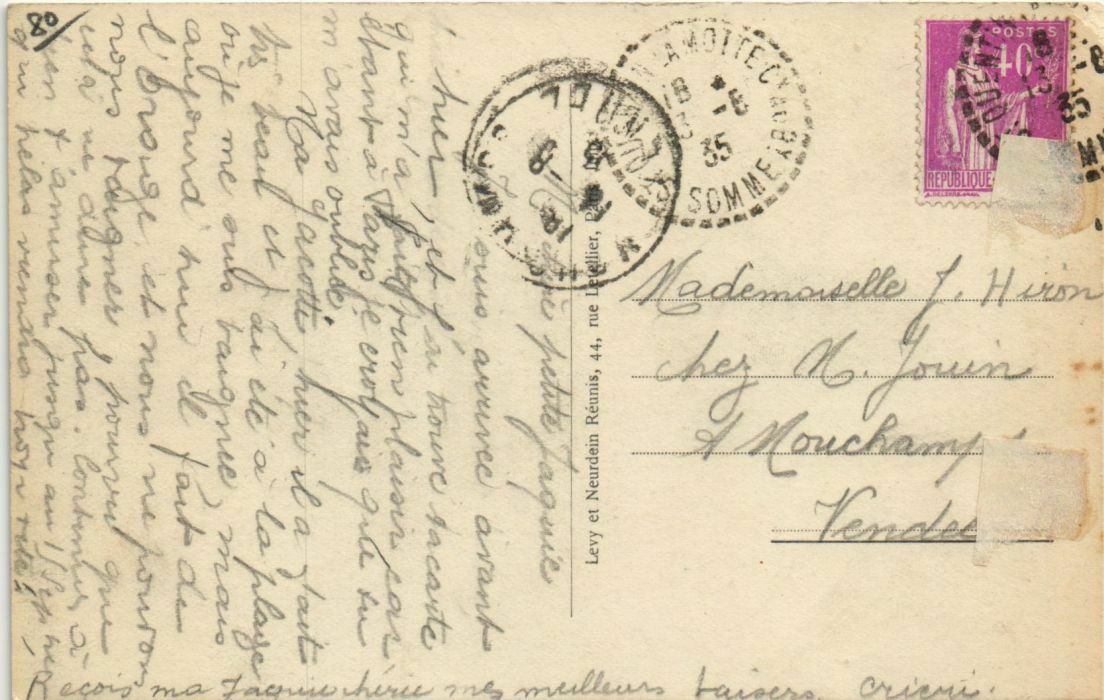 80
petite Jaquie
suis arrivée avant
hier, et j'ai trouvé ta carte
qui m'a fait bien plaisir car
étant à Paris je croyais que tu
m'avais oubliée.
Ma cacotte hier il a fait
très beau et j'ai été à la plage
où je me suis baignée mais
aujourd'hui il fait de
l'orage et nous ne pouvons
nous baigner pourvu que
cela ne dure pas. Continue à
bien t'amuser jusqu'au 1 Sept
qui hélas viendra trop vite,
Reçois ma Jaquie chérie mes meilleurs baisers cricri
Levy et Neurdein Réunis, 44, rue Letellier,
LAMOTTE
8 -8
35
SOMME
MOUCHAMPS
POSTES
40
REPUBLIQUE
QUENTIN
35
Mademoiselle J. Hiron
chez M. Jouin
A Mouchamps
Vendée